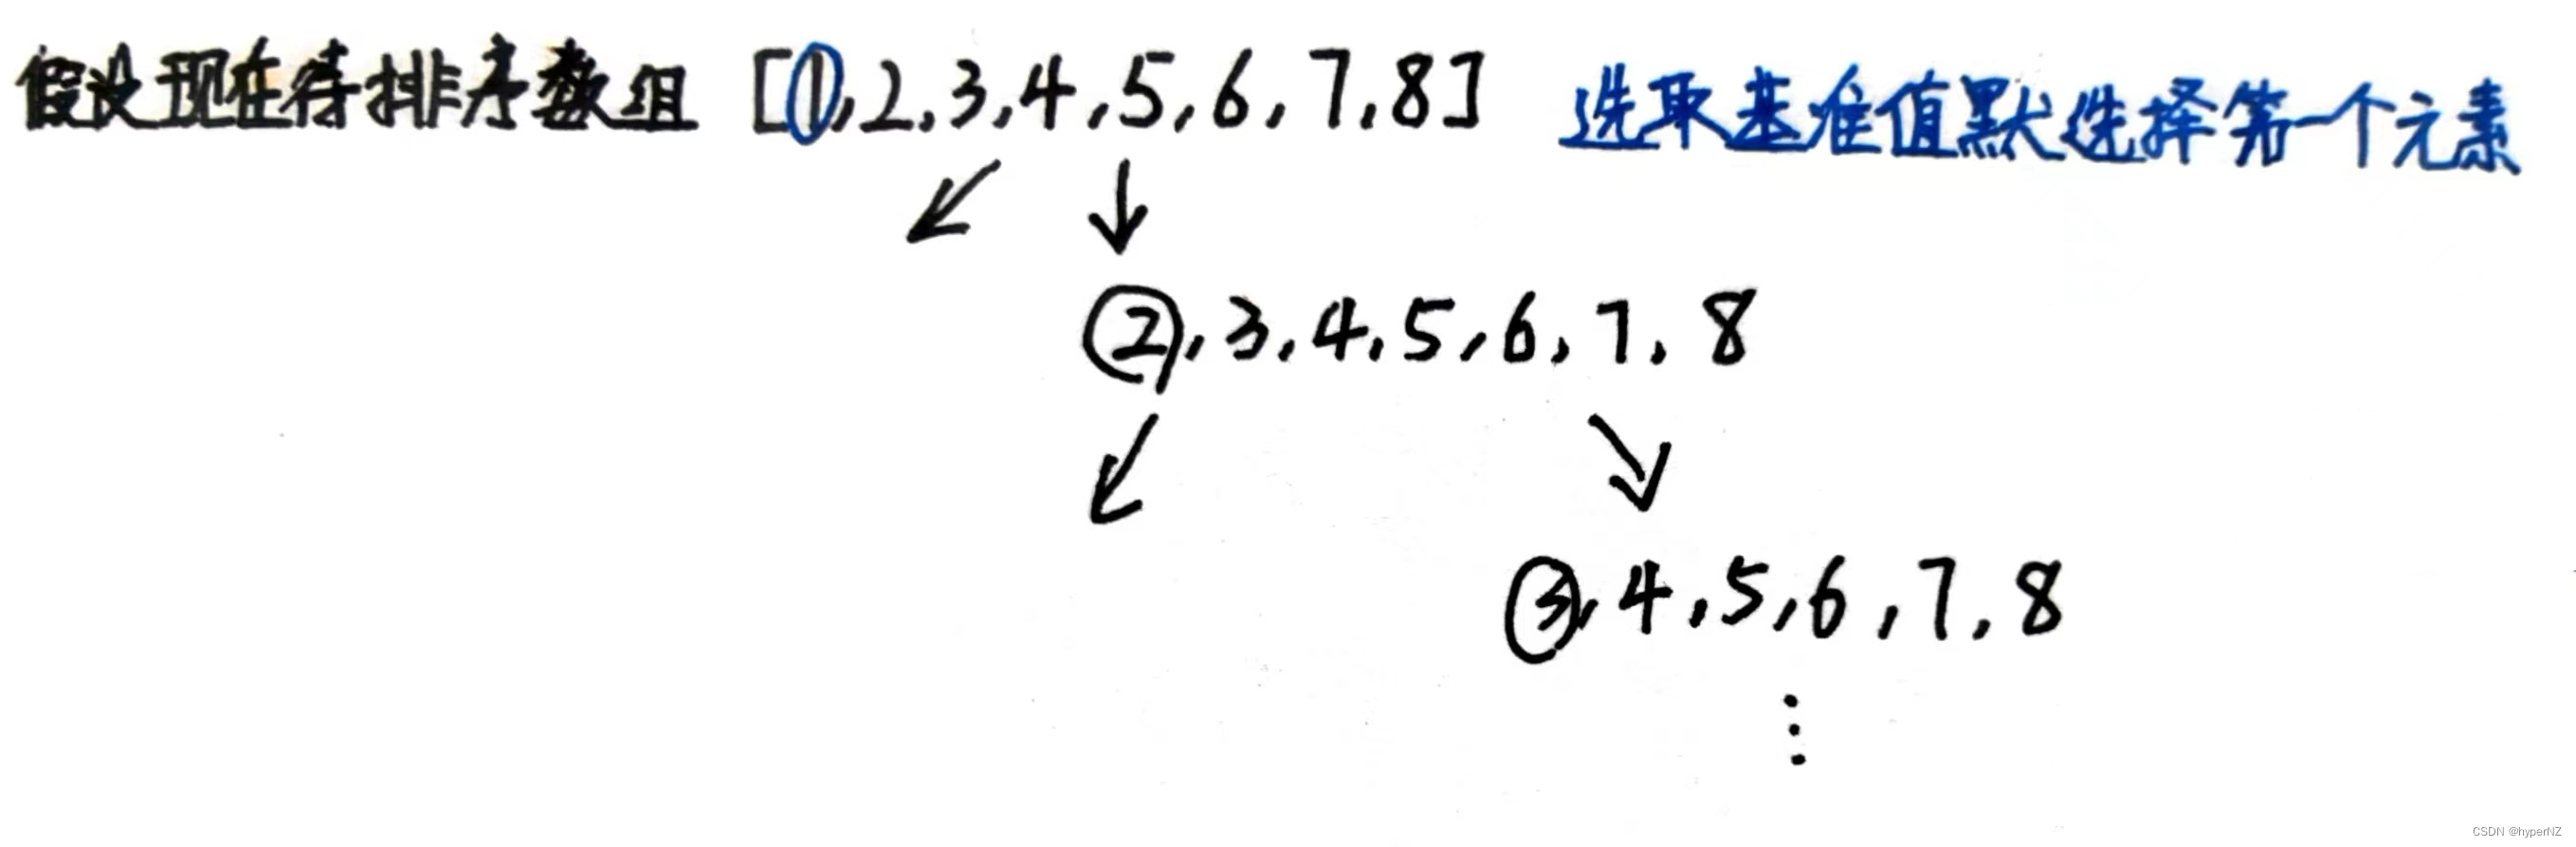 假设现在待排序数组 [1,2,3,4,5,6,7,8] 选取基准值默选择第一个元素
2,3,4,5,6,7,8
3,4,5,6,7,8
CSDN @hyperNZ